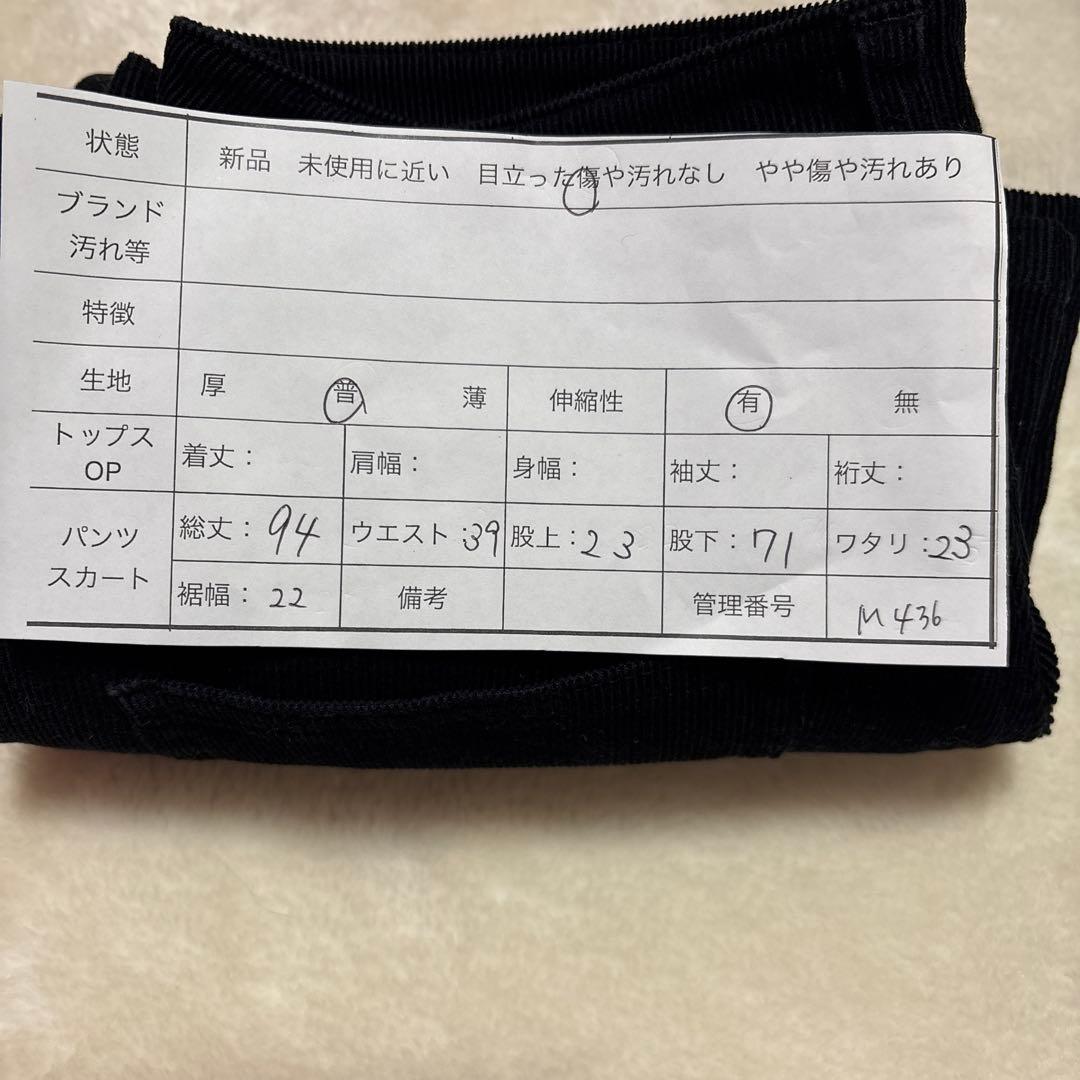 状態 新品 未使用に近い 目立った傷や汚れなし やや傷や汚れあり
ブランド
汚れ等
特徴
生地 厚 普 薄 伸縮性 有 無
トップス
OP
着丈： 肩幅： 身幅： 袖丈： 裄丈：
パンツ
スカート
総丈：94 ウエスト：39 股上：23 股下：71 ワタリ：23
裾幅：22 備考 管理番号 M436